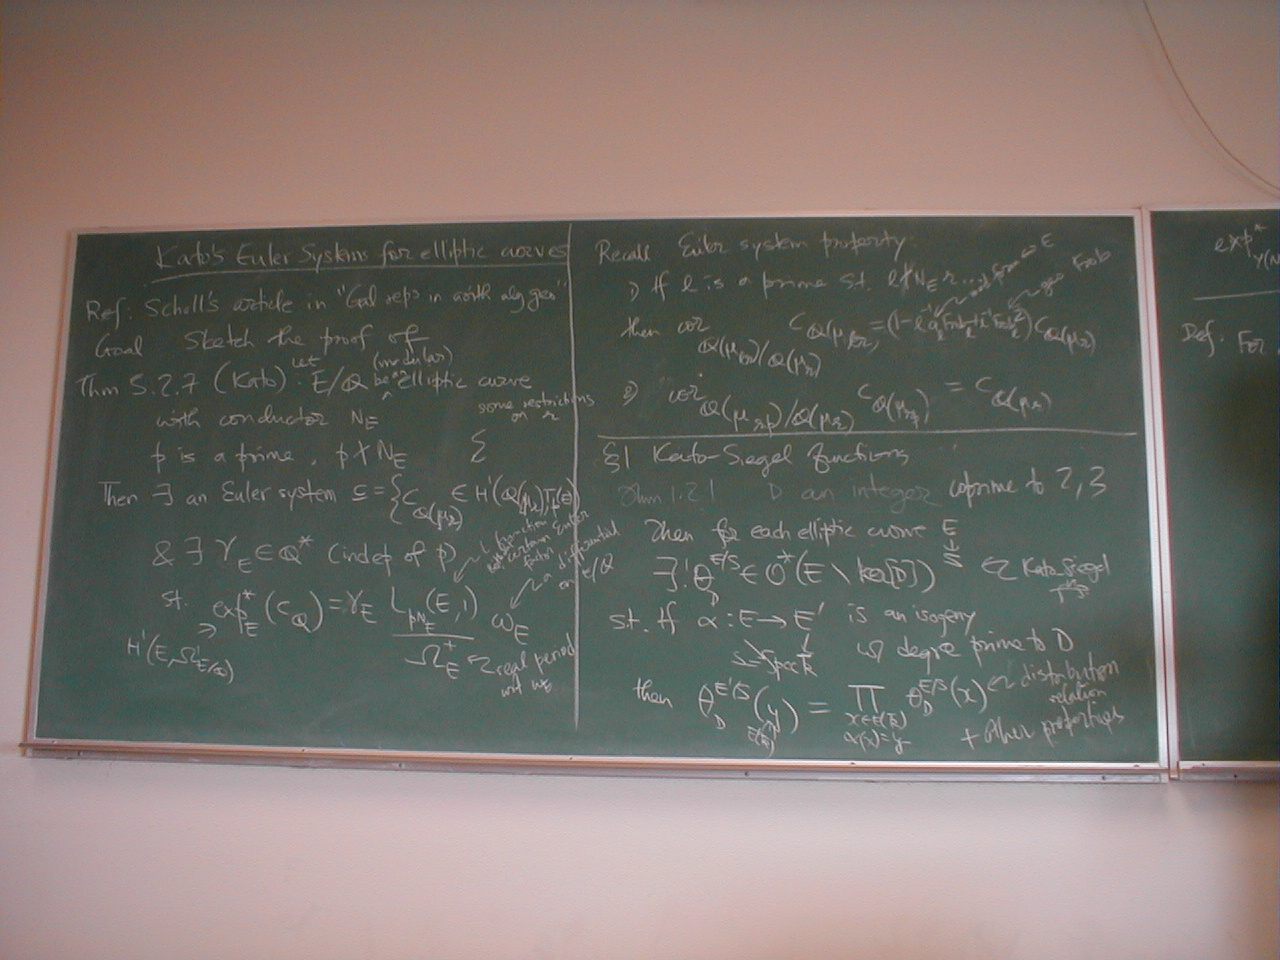 Kato's Euler Systems for elliptic curves
Ref: Scholl's article in "Gal reps in arith alg geo"
Goal Sketch the proof of
Thm 5.2.7 (Kato): let E/Q be a (modular) elliptic curve
with conductor N_E
p is a prime, p ∤ N_E
some restrictions on r
Then ∃ an Euler system c = { c_{Q(μ_r)} ∈ H'(Q(μ_r), T_p(E))
& ∃ γ_E ∈ Q* (indep of p)
L function certain Euler factor
a differential on E/Q
st. exp*_E (c_Q) = γ_E L_{pN_E}(E,1) / Ω^+_E ω_E
H'(E, Ω'_{E/Q})
real period wrt ω_E
Recall Euler system property
1) If ℓ is a prime st. ℓ ∤ N_E r
E
geo Frob
then cor_{Q(μ_{ℓr})/Q(μ_r)} c_{Q(μ_{ℓr})} = (1 - ℓ^{-1} a_ℓ Frob_ℓ + ℓ^{-1} Frob_ℓ^2) c_{Q(μ_r)}
2) cor_{Q(μ_{rp})/Q(μ_r)} c_{Q(μ_{rp})} = c_{Q(μ_r)}
§1 Kato-Siegel functions
Thm 1.2.1 D an integer coprime to 2,3
Then for each elliptic curve E ↓ S
∃! θ_D^{E/S} ∈ O*(E \ ker[D]) Kato-Siegel
st. If α: E → E' is an isogeny
S = Spec k w degree prime to D
then θ_D^{E'/S}(y) = ∏_{x∈E(k̄) α(x)=y} θ_D^{E/S}(x) distribution relation
+ other properties
exp*
Def: For